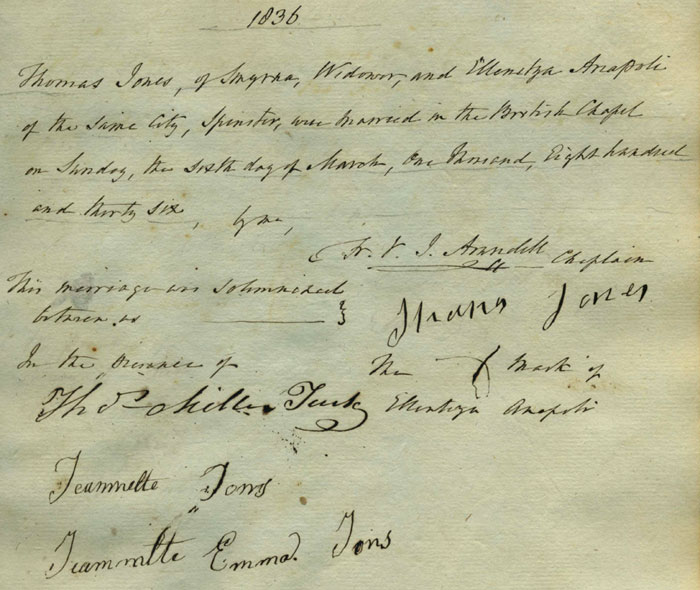 1836
Thomas Jones, of Smyrna, Widower, and Ellenitza Anapoli
of the same City, Spinster, were married in the British Chapel
on Sunday, the sixth day of March, One Thousand, Eight hundred
and thirty six, by me,
Fr. V. J. Arundell Chaplain
This marriage was Solemnized
between us
Thomas Jones
In the presence of
The Mark of
Ellenitza Anapoli
Thos. Miller Turk
Jeannette Jons
Jeannette Emma Jons